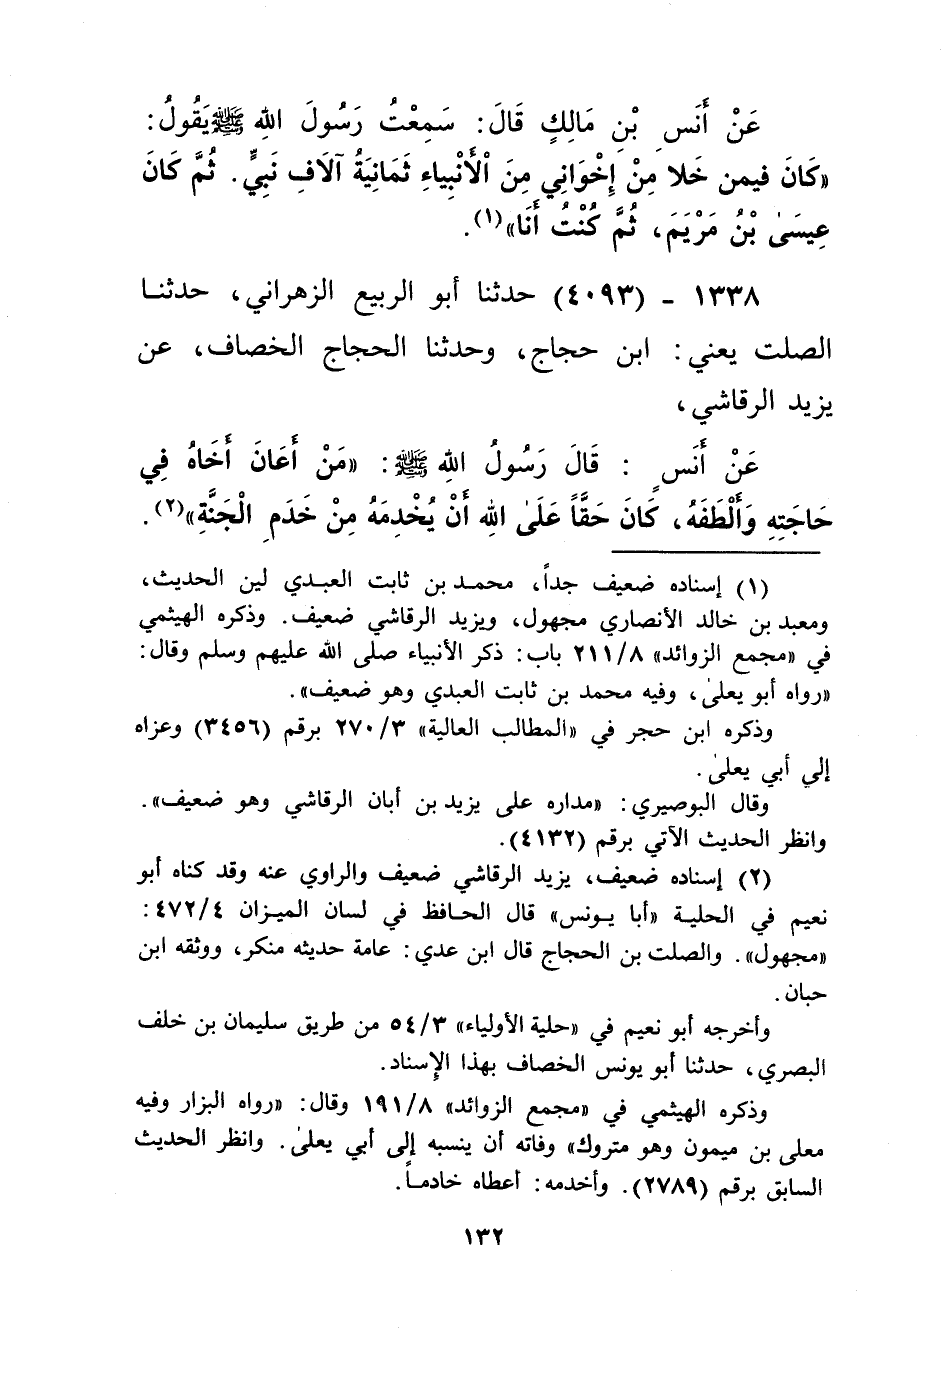 عَنْ أَنَسِ بْنِ مَالِكٍ قَالَ: سَمِعْتُ رَسُولَ اللهِ ﷺ يَقُولُ:
«كَانَ فيمن خَلا مِنْ إِخْوَانِي مِنَ الْأَنْبِياءِ ثَمَانِيَةُ آلَافِ نَبِيٍّ. ثُمَّ كَانَ
عِيسَىٰ بْنُ مَرْيَمَ، ثُمَّ كُنْتُ أَنَا»(١).
١٣٣٨ - (٤٠٩٣) حدثنا أبو الربيع الزهراني، حدثنا
الصلت يعني: ابن حجاج، وحدثنا الحجاج الخصاف، عن
يزيد الرقاشي،
عَنْ أَنَسٍ : قَالَ رَسُولُ اللهِ ﷺ: «مَنْ أَعَانَ أَخَاهُ فِي
حَاجَتِهِ وَأَلْطَفَهُ، كَانَ حَقَّاً عَلَىٰ اللهِ أَنْ يُخْدِمَهُ مِنْ خَدَمِ الْجَنَّةِ»(٢).
(١) إسناده ضعيف جداً، محمد بن ثابت العبدي لين الحديث،
ومعبد بن خالد الأنصاري مجهول، ويزيد الرقاشي ضعيف. وذكره الهيثمي
في «مجمع الزوائد» ٢١١/٨ باب: ذكر الأنبياء صلى الله عليهم وسلم وقال:
«رواه أبو يعلىٰ، وفيه محمد بن ثابت العبدي وهو ضعيف».
وذكره ابن حجر في «المطالب العالية» ٢٧٠/٣ برقم (٣٤٥٦) وعزاه
إلي أبي يعلىٰ.
وقال البوصيري: «مداره على يزيد بن أبان الرقاشي وهو ضعيف».
وانظر الحديث الآتي برقم (٤١٣٢).
(٢) إسناده ضعيف، يزيد الرقاشي ضعيف والراوي عنه وقد كناه أبو
نعيم في الحلية «أبا يونس» قال الحافظ في لسان الميزان ٤٧٢/٤:
«مجهول». والصلت بن الحجاج قال ابن عدي: عامة حديثه منكر، ووثقه ابن
حبان.
وأخرجه أبو نعيم في «حلية الأولياء» ٥٤/٣ من طريق سليمان بن خلف
البصري، حدثنا أبو يونس الخصاف بهذا الإسناد.
وذكره الهيثمي في «مجمع الزوائد» ١٩١/٨ وقال: «رواه البزار وفيه
معلى بن ميمون وهو متروك» وفاته أن ينسبه إلى أبي يعلىٰ. وانظر الحديث
السابق برقم (٢٧٨٩). وأخدمه: أعطاه خادماً.
١٣٢